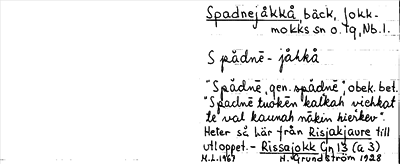 Spadnejåkkå, bäck, Jokk-
mokks sn o. tg, Nb.l.
Spădnē-jåkkå
"Spădnē, gen. spădnē", obek. bet.
"Spadnē tuokēn kalkah viehkat
te val kaunah nākin hierkev".
Heter så här från Risjakjaure till
utloppet. – Rissajokk Gn 13 (a 3)
H.L. 1967 H. Grundström 1928